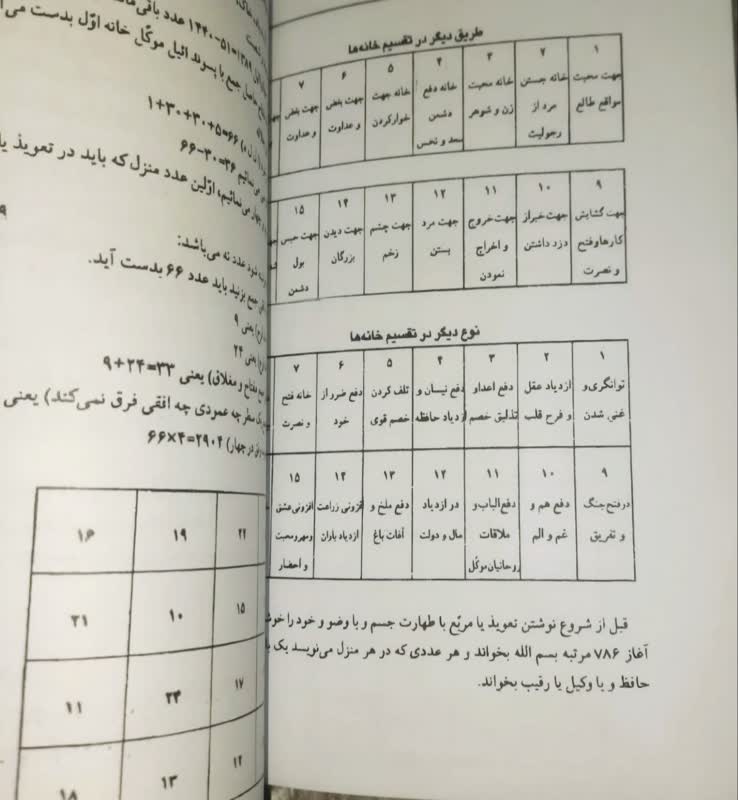 طریق دیگر در تقسیم خانه‌ها
۱ ۲ ۳ ۴ ۵ ۶ ۷
جهت محبت خانه جستن خانه محبت خانه دفع خانه جهت جهت بغض جهت بغض
مواقع طالع مرد از زن و شوهر دشمن خوارکردن و عداوت و عداوت
رجولیت سعد و نحس
۹ ۱۰ ۱۱ ۱۲ ۱۳ ۱۴ ۱۵
جهت گشایش جهت خبراز جهت خروج جهت مرد جهت چشم جهت دیدن جهت حبس
کارهاوفتح دزد داشتن و اخراج بستن زخم بزرگان بول
و نصرت نمودن دشمن
نوع دیگر در تقسیم خانه‌ها
۱ ۲ ۳ ۴ ۵ ۶ ۷
توانگری و ازدیاد عقل دفع اعداو دفع نیسان و تلف کردن دفع ضرر از خانه فتح
غنی شدن و فرح قلب تذلیق خصم ازدیاد حافظه خصم قوی خود و نصرت
۹ ۱۰ ۱۱ ۱۲ ۱۳ ۱۴ ۱۵
درفتح جنگ دفع هم و دفع الباب و در ازدیاد دفع ملخ و افزونی زراعت افزونی عشق
و تفریق غم و الم ملاقات مال و دولت آفات باغ ازدیاد باران ومهرومحبت
روحانیان موکّل و احضار
قبل از شروع نوشتن تعویذ یا مربّع با طهارت جسم و با وضو و خود را
آغاز ۷۸۶ مرتبه بسم الله بخواند و هر عددی که در هر منزل می‌نویسد یک
حافظ و یا وکیل یا رقیب بخواند.
۱۴۴۰-۵۱=۱۳۸۹ عدد
حاصل جمع با پسوند ائیل موکّل خانه اوّل بدست
۱+۳۰+۳۰+۵=۶۶
۶۶-۳۰=۳۶
می‌نمائیم، اوّلین عدد منزل که باید در تعویذ یا
شود عدد نه می‌باشد:
جمع بزنید باید عدد ۶۶ بدست آید.
یعنی ۹
یعنی ۲۴
مفتاح و مغلاق) یعنی ۳۳=۲۴+۹
سطر چه عمودی چه افقی فرق نمی‌کند) یعنی
در چهار) ۶۶×۴=۲۹۰۴
۲۲ ۱۹ ۱۶
۱۵ ۱۰ ۲۱
۱۷ ۲۴ ۱۱
۱۲ ۱۳ ۱۸